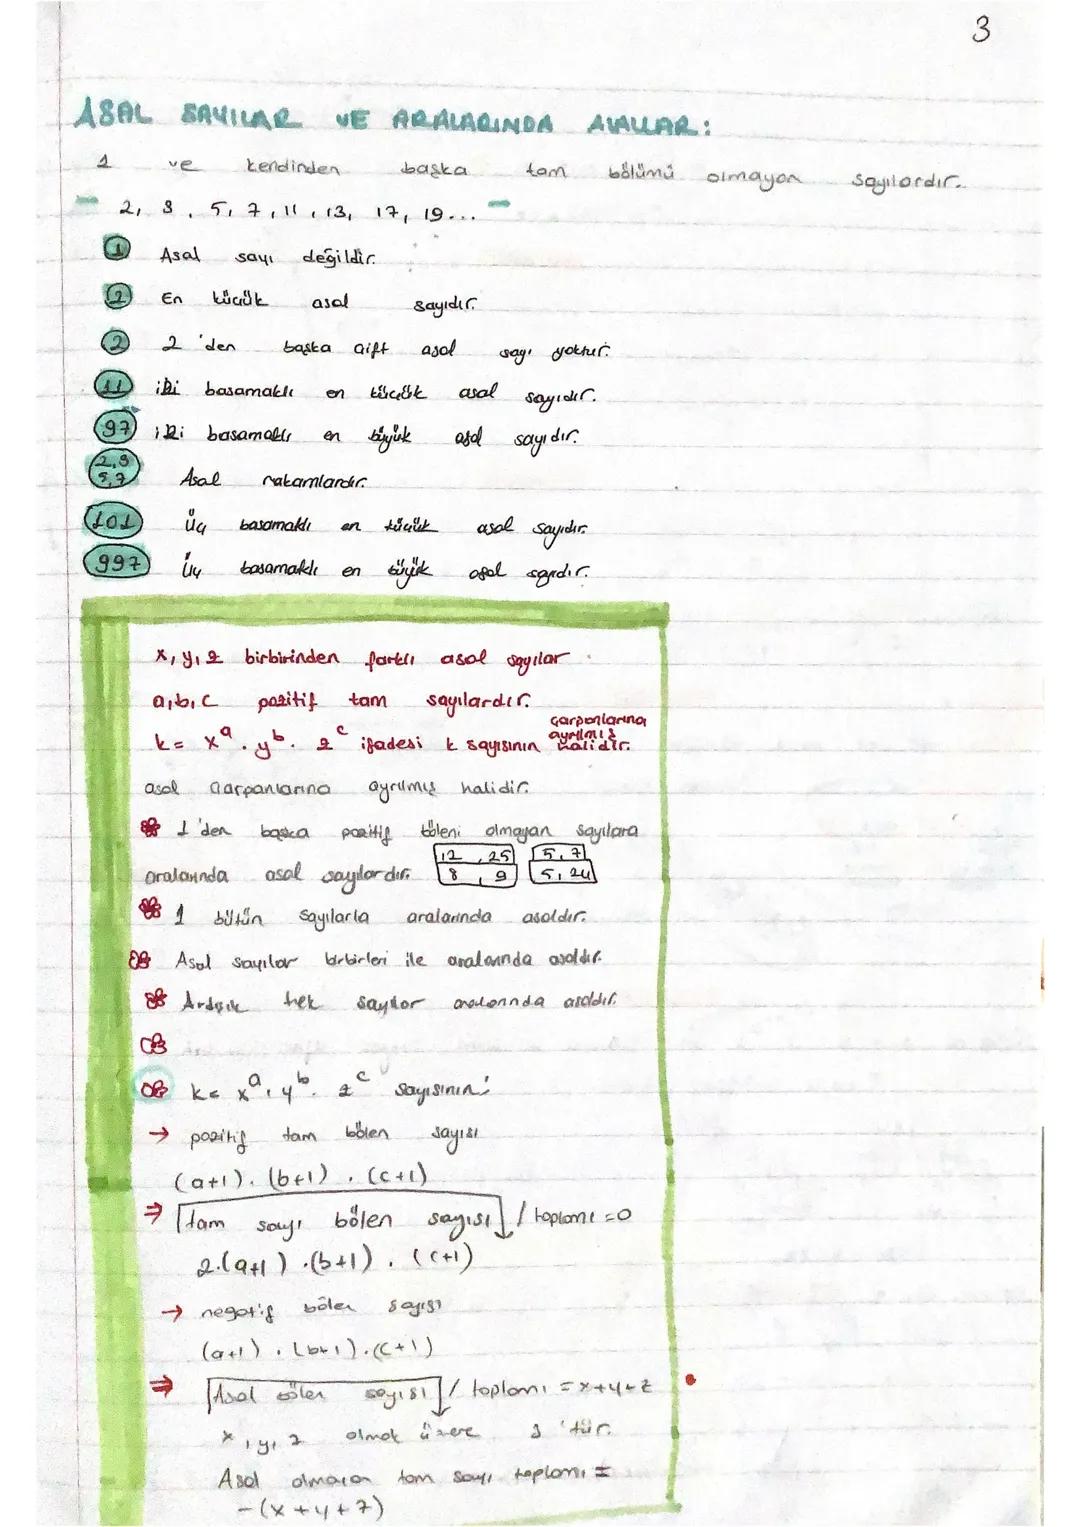 3
ASAL SAYILAR VE ARALARINDA ASALLAR:
1 ve kendinden başka tam bölümü olmayan sayılardır.
- 2, 3, 5, 7, 11, 13, 17, 19... -
1 Asal sayı değildir.
2 En küçük asal sayıdır.
2 2'den başka çift asal sayı yoktur.
11 iki basamaklı en küçük asal sayıdır.
97 iki basamaklı en büyük asal sayıdır.
2,3
5,7 Asal rakamlardır.
101 üç basamaklı en küçük asal sayıdır.
997 üç basamaklı en büyük asal sayıdır.
x, y, z birbirinden farklı asal sayılar
a, b, c pozitif tam sayılardır.
k = x^a . y^b . z^c ifadesi k sayısının çarpanlarına ayrılmış halidir.
asal çarpanlarına ayrılmış halidir.
1'den başka pozitif böleni olmayan sayılara
aralarında asal sayılardır. 12, 25 8, 9 5, 7 5, 24
1 bütün sayılarla aralarında asaldır.
Asal sayılar birbirleri ile aralarında asaldır.
Ardışık tek sayılar aralarında asaldır.
k = x^a . y^b . z^c sayısının:
→ pozitif tam bölen sayısı
(a+1). (b+1) . (c+1)
⇒ tam sayı bölen sayısı / toplamı =0
2.(a+1) .(b+1) . (c+1)
→ negatif bölen sayısı
(a+1) . (b+1).(c+1)
⇒ Asal bölen sayısı / toplamı = x+y+z
x, y, z olmak üzere 3 'tür.
Asal olmayan tam sayı toplamı =
-(x+y+z)